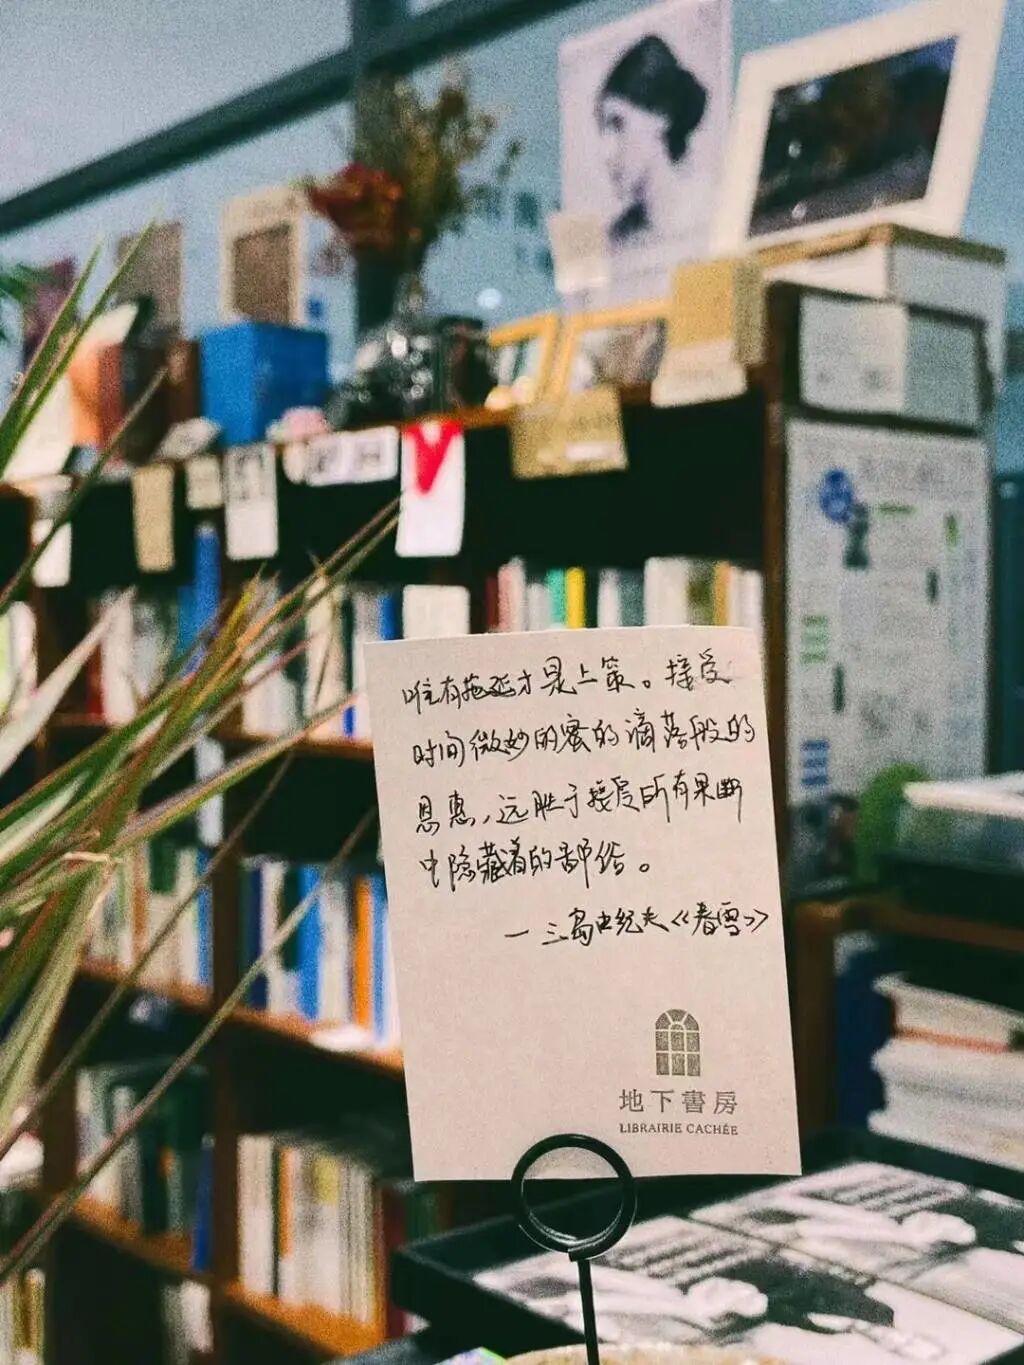 唯有拖延才是上策。接受
时间微妙的蜜的滴落般的
恩惠，远胜于接受所有果断
中隐藏着的鄙俗。
— 三岛由纪夫《春雪》
地下書房
LIBRAIRIE CACHÉE